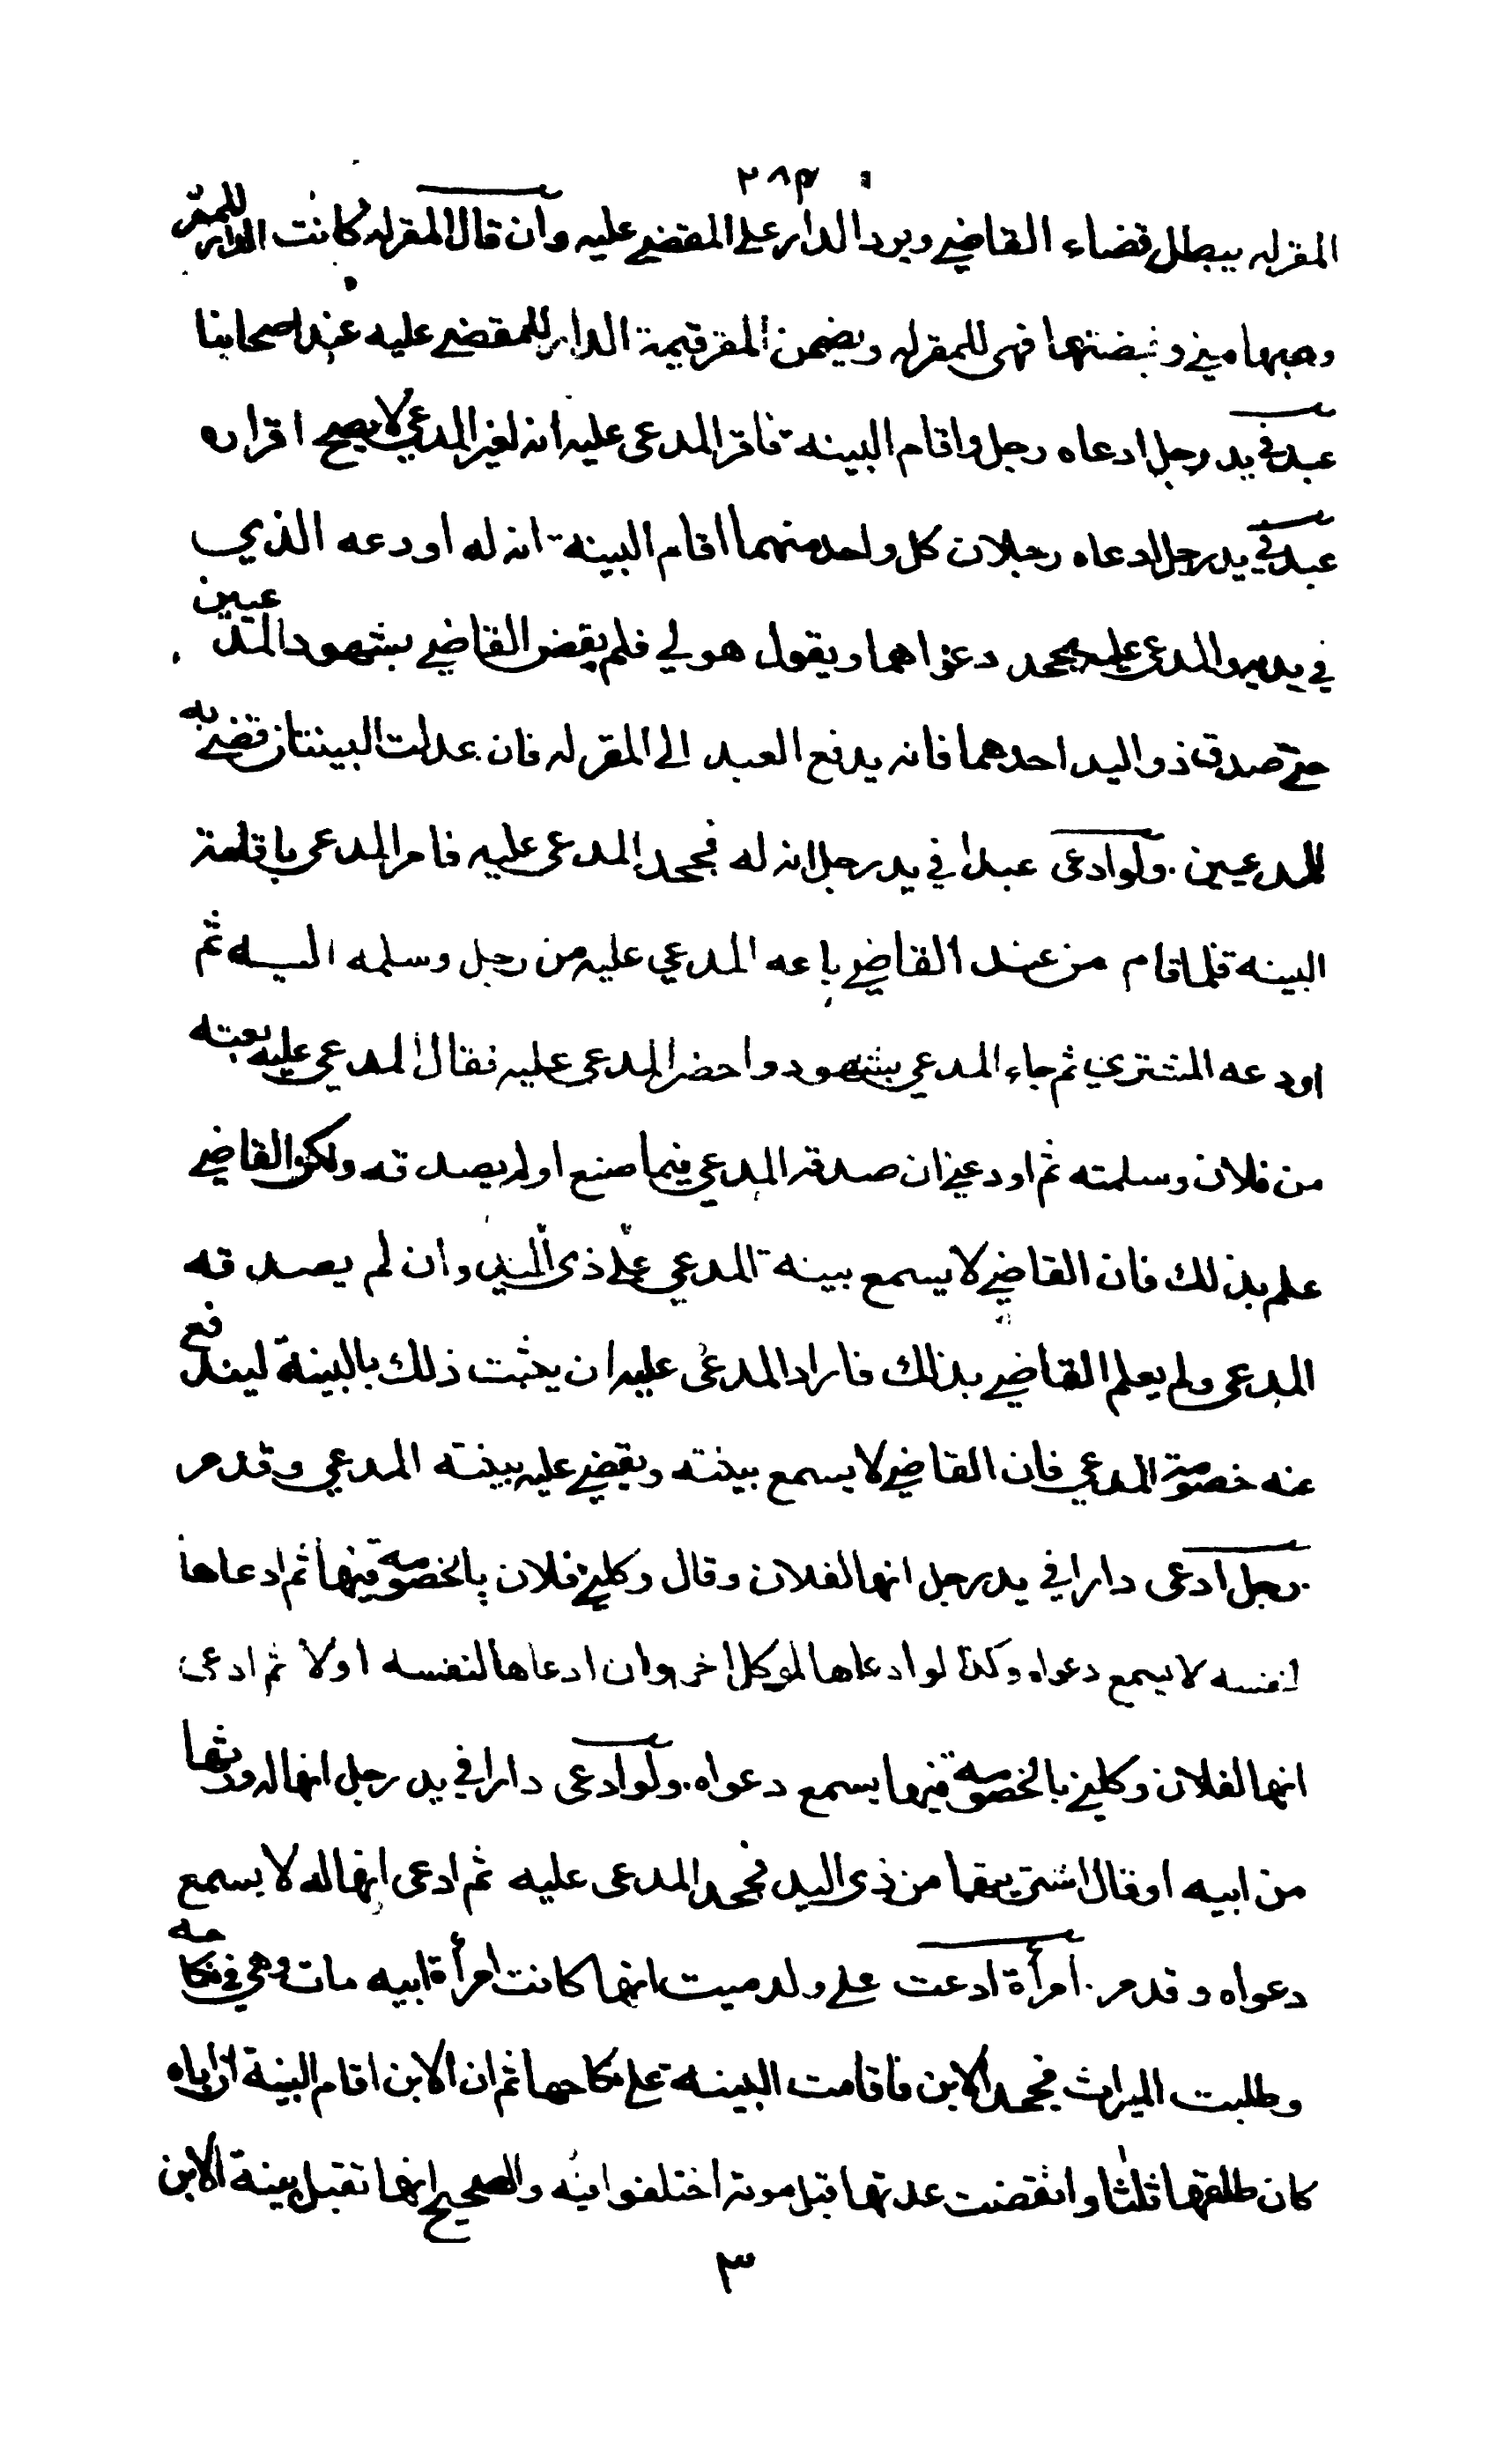 ٢٨٣
المقرله يبطل قضاء القاضي ويرد الدار على المقضي عليه وان قال المقرله كانت الدار للمقر
وهبها مني وقبضتها فهى للمقرله ويضمن المقر قيمة الدار للمقضي عليه عند اصحابنا
عبد في يد رجل ادعاه رجل واقام البينة فاقر المدعى عليه انه لغير المدعي لا يصح اقراره
عبد في يد رجل ادعاه رجلان كل واحد منهما اقام البينة انه له اودعه الذي
في يديه والمدعى عليه يجحد دعواهما ويقول هو لي فلم يقض القاضي بشهود المدعيين
حتى صدق ذو اليد احدهما فانه يدفع العبد الى المقرله فان عدلت البينتان قضي به
للمدعيين . ولو ادعى عبدا في يد رجل انه له فجحد المدعى عليه فامر المدعى باقامة
البينه فلما قام من عند القاضي باعه المدعي عليه من رجل وسلمه اليه ثم
اودعه المشتري ثم جاء المدعي بشهود واحضر المدعى عليه فقال المدعي عليه بعته
من فلان وسلمته ثم اودعني ان صدقه المدعي فيما صنع او لم يصدقه ولكن القاضي
علم بذلك فان القاضي لا يسمع بينة المدعي على ذى اليد وان لم يصدقه
المدعى ولم يعلم القاضي بذلك فاراد المدعى عليه ان يثبت ذلك بالبينة ليندفع
عنه خصومة المدعي فان القاضي لا يسمع بينته ويقضي عليه ببينته المدعي وقد مر
رجل ادعى دارا في يد رجل انها لفلان وقال وكلني فلان بالخصومة فيها ثم ادعاها
لنفسه لا يسمع دعواه وكذا لو ادعاها لموكل اخر وان ادعاها لنفسه اولا ثم ادعى
انها لفلان وكلني بالخصومة فيها يسمع دعواه . ولو ادعى دارا في يد رجل انها له ورثها
من ابيه او قال اشتريتها من ذى اليد فجحد المدعى عليه ثم ادعى انها له لا يسمع
دعواه وقد مر . امرأة ادعت على ولد ميت انها كانت امرأة ابيه مات وهي في نكاحه
وطلبت الميراث فجحد الابن فاقامت البينة على نكاحها ثم ان الابن اقام البينة ان اباه
كان طلقها ثلثا وانقضت عدتها قبل موته اختلفوا فيه والصحيح انها تقبل بينة الابن
٣